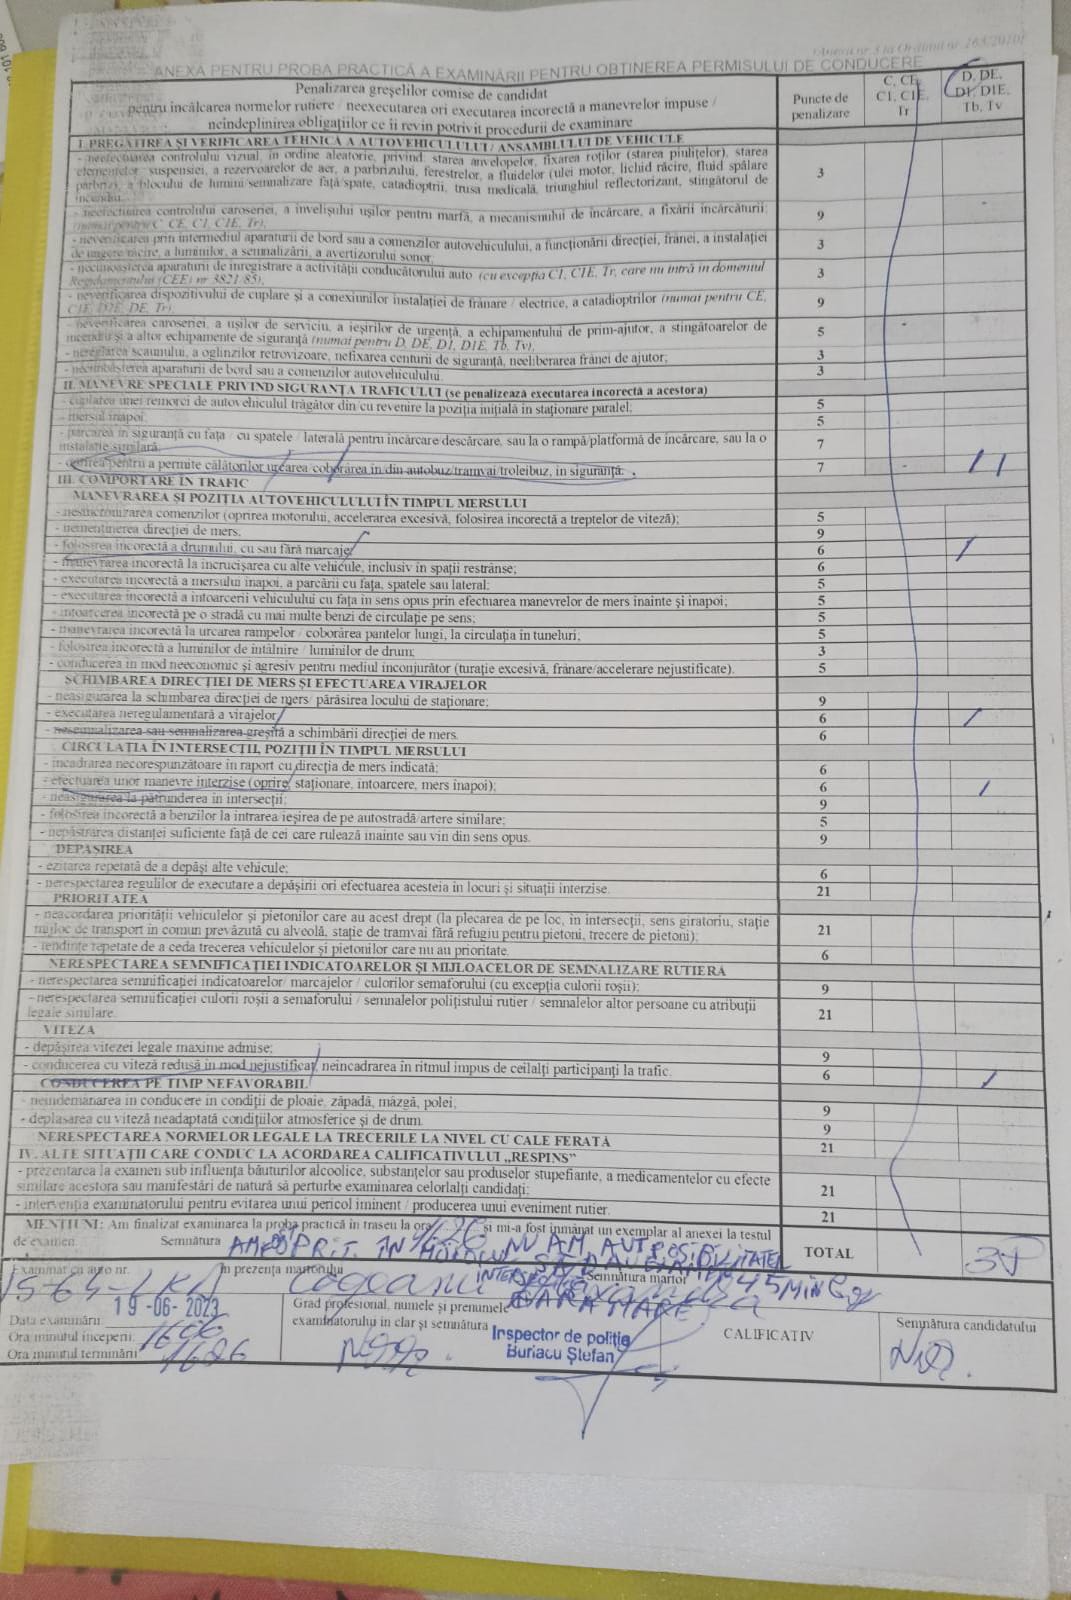 Anexa nr. 3 la Ordinul nr. 163/2010
ANEXĂ PENTRU PROBA PRACTICĂ A EXAMINĂRII PENTRU OBȚINEREA PERMISULUI DE CONDUCERE
Penalizarea greșelilor comise de candidat
pentru încălcarea normelor rutiere / neexecutarea ori executarea incorectă a manevrelor impuse /
neîndeplinirea obligațiilor ce îi revin potrivit procedurii de examinare
Puncte de
penalizare
C, CE,
C1, C1E,
Tr
D, DE,
D1, D1E,
Tb, Tv
I. PREGĂTIREA ȘI VERIFICAREA TEHNICĂ A AUTOVEHICULULUI / ANSAMBLULUI DE VEHICULE
- neefectuarea controlului vizual, în ordine aleatorie, privind: starea anvelopelor, fixarea roților (starea piulițelor), starea
elementelor suspensiei, a rezervoarelor de aer, a parbrizului, ferestrelor, a fluidelor (ulei motor, lichid răcire, fluid spălare
parbriz), a blocului de lumini/semnalizare față/spate, catadioptrii, trusa medicală, triunghiul reflectorizant, stingătorul de
incendiu. 3
- neefectuarea controlului caroseriei, a învelișului ușilor pentru marfă, a mecanismului de încărcare, a fixării încărcăturii;
(numai pentru C, CE, C1, C1E, Tr); 9
- neverificarea prin intermediul aparaturii de bord sau a comenzilor autovehiculului, a funcționării direcției, frânei, a instalației
de ungere/răcire, a luminilor, a semnalizării, a avertizorului sonor. 3
- necunoașterea aparaturii de înregistrare a activității conducătorului auto (cu excepția C1, C1E, Tr, care nu intră în domeniul
Regulamentului (CEE) nr 3821/85); 3
- neverificarea dispozitivului de cuplare și a conexiunilor instalației de frânare / electrice, a catadioptrilor (numai pentru CE,
C1E, D1E, DE, Tr); 9
- neverificarea caroseriei, a ușilor de serviciu, a ieșirilor de urgență, a echipamentului de prim-ajutor, a stingătoarelor de
incendiu și a altor echipamente de siguranță (numai pentru D, DE, D1, D1E, Tb, Tv); 5
- nereglarea scaunului, a oglinzilor retrovizoare, nefixarea centurii de siguranță, neeliberarea frânei de ajutor; 3
- necunoașterea aparaturii de bord sau a comenzilor autovehiculului. 3
II. MANEVRE SPECIALE PRIVIND SIGURANȚA TRAFICULUI (se penalizează executarea incorectă a acestora)
- cuplarea unei remorci de autovehiculul trăgător din/cu revenire la poziția inițială în staționare paralel; 5
- mersul înapoi; 5
- parcarea în siguranță cu fața / cu spatele / laterală pentru încărcare/descărcare, sau la o rampă/platformă de încărcare, sau la o
instalație similară; 7
- oprirea pentru a permite călătorilor urcarea/coborârea în/din autobuz/tramvai/troleibuz, în siguranță. 7
III. COMPORTARE ÎN TRAFIC
MANEVRAREA ȘI POZIȚIA AUTOVEHICULULUI ÎN TIMPUL MERSULUI
- nesincronizarea comenzilor (oprirea motorului, accelerarea excesivă, folosirea incorectă a treptelor de viteză); 5
- nemenținerea direcției de mers; 9
- folosirea incorectă a drumului, cu sau fără marcaje; 6
- manevrarea incorectă la încrucișarea cu alte vehicule, inclusiv în spații restrânse; 6
- executarea incorectă a mersului înapoi, a parcării cu fața, spatele sau lateral; 5
- executarea incorectă a întoarcerii vehiculului cu fața în sens opus prin efectuarea manevrelor de mers înainte și înapoi; 5
- întoarcerea incorectă pe o stradă cu mai multe benzi de circulație pe sens; 5
- manevrarea incorectă la urcarea rampelor / coborârea pantelor lungi, la circulația în tuneluri; 5
- folosirea incorectă a luminilor de întâlnire / luminilor de drum; 3
- conducerea în mod neeconomic și agresiv pentru mediul înconjurător (turație excesivă, frânare/accelerare nejustificate). 5
SCHIMBAREA DIRECȚIEI DE MERS ȘI EFECTUAREA VIRAJELOR
- neasigurarea la schimbarea direcției de mers/ părăsirea locului de staționare; 9
- executarea neregulamentară a virajelor; 6
- nesemnalizarea sau semnalizarea greșită a schimbării direcției de mers. 6
CIRCULAȚIA ÎN INTERSECȚII, POZIȚII ÎN TIMPUL MERSULUI
- încadrarea necorespunzătoare în raport cu direcția de mers indicată; 6
- efectuarea unor manevre interzise (oprire, staționare, întoarcere, mers înapoi); 6
- neasigurarea la pătrunderea în intersecții; 9
- folosirea incorectă a benzilor la intrarea/ieșirea de pe autostradă/artere similare; 5
- nepăstrarea distanței suficiente față de cei care rulează înainte sau vin din sens opus. 9
DEPĂȘIREA
- ezitarea repetată de a depăși alte vehicule; 6
- nerespectarea regulilor de executare a depășirii ori efectuarea acesteia în locuri și situații interzise. 21
PRIORITATEA
- neacordarea priorității vehiculelor și pietonilor care au acest drept (la plecarea de pe loc, în intersecții, sens giratoriu, stație
mijloc de transport în comun prevăzută cu alveolă, stație de tramvai fără refugiu pentru pietoni, trecere de pietoni); 21
- tendințe repetate de a ceda trecerea vehiculelor și pietonilor care nu au prioritate. 6
NERESPECTAREA SEMNIFICAȚIEI INDICATOARELOR ȘI MIJLOACELOR DE SEMNALIZARE RUTIERĂ
- nerespectarea semnificației indicatoarelor/ marcajelor / culorilor semaforului (cu excepția culorii roșii); 9
- nerespectarea semnificației culorii roșii a semaforului / semnalelor polițistului rutier / semnalelor altor persoane cu atribuții
legale similare. 21
VITEZA
- depășirea vitezei legale maxime admise; 9
- conducerea cu viteză redusă în mod nejustificat, neîncadrarea în ritmul impus de ceilalți participanți la trafic. 6
CONDUCEREA PE TIMP NEFAVORABIL
- neîndemânarea în conducere în condiții de ploaie, zăpadă, mâzgă, polei; 9
- deplasarea cu viteză neadaptată condițiilor atmosferice și de drum. 9
NERESPECTAREA NORMELOR LEGALE LA TRECERILE LA NIVEL CU CALE FERATĂ 21
IV. ALTE SITUAȚII CARE CONDUC LA ACORDAREA CALIFICATIVULUI „RESPINS”
- prezentarea la examen sub influența băuturilor alcoolice, substanțelor sau produselor stupefiante, a medicamentelor cu efecte
similare acestora sau manifestări de natură să perturbe examinarea celorlalți candidați; 21
- intervenția examinatorului pentru evitarea unui pericol iminent / producerea unui eveniment rutier. 21
MENȚIUNI: Am finalizat examinarea la proba practică în traseu la ora 1626 și mi-a fost înmânat un exemplar al anexei la testul
de examen. Semnătura
AM OPRIT ÎN NU AM AVUT POSIBILITATEA
TOTAL
Examinat cu auto nr. în prezența martorului Semnătura martor 45 MIN
GARA MARE
Data examinării: 19-06-2023
Ora/minutul începerii:
Ora/minutul terminării 1626
Grad profesional, numele și prenumele
examinatorului în clar și semnătura
Inspector de poliție
Buriacu Ștefan
CALIFICATIV
Semnătura candidatului